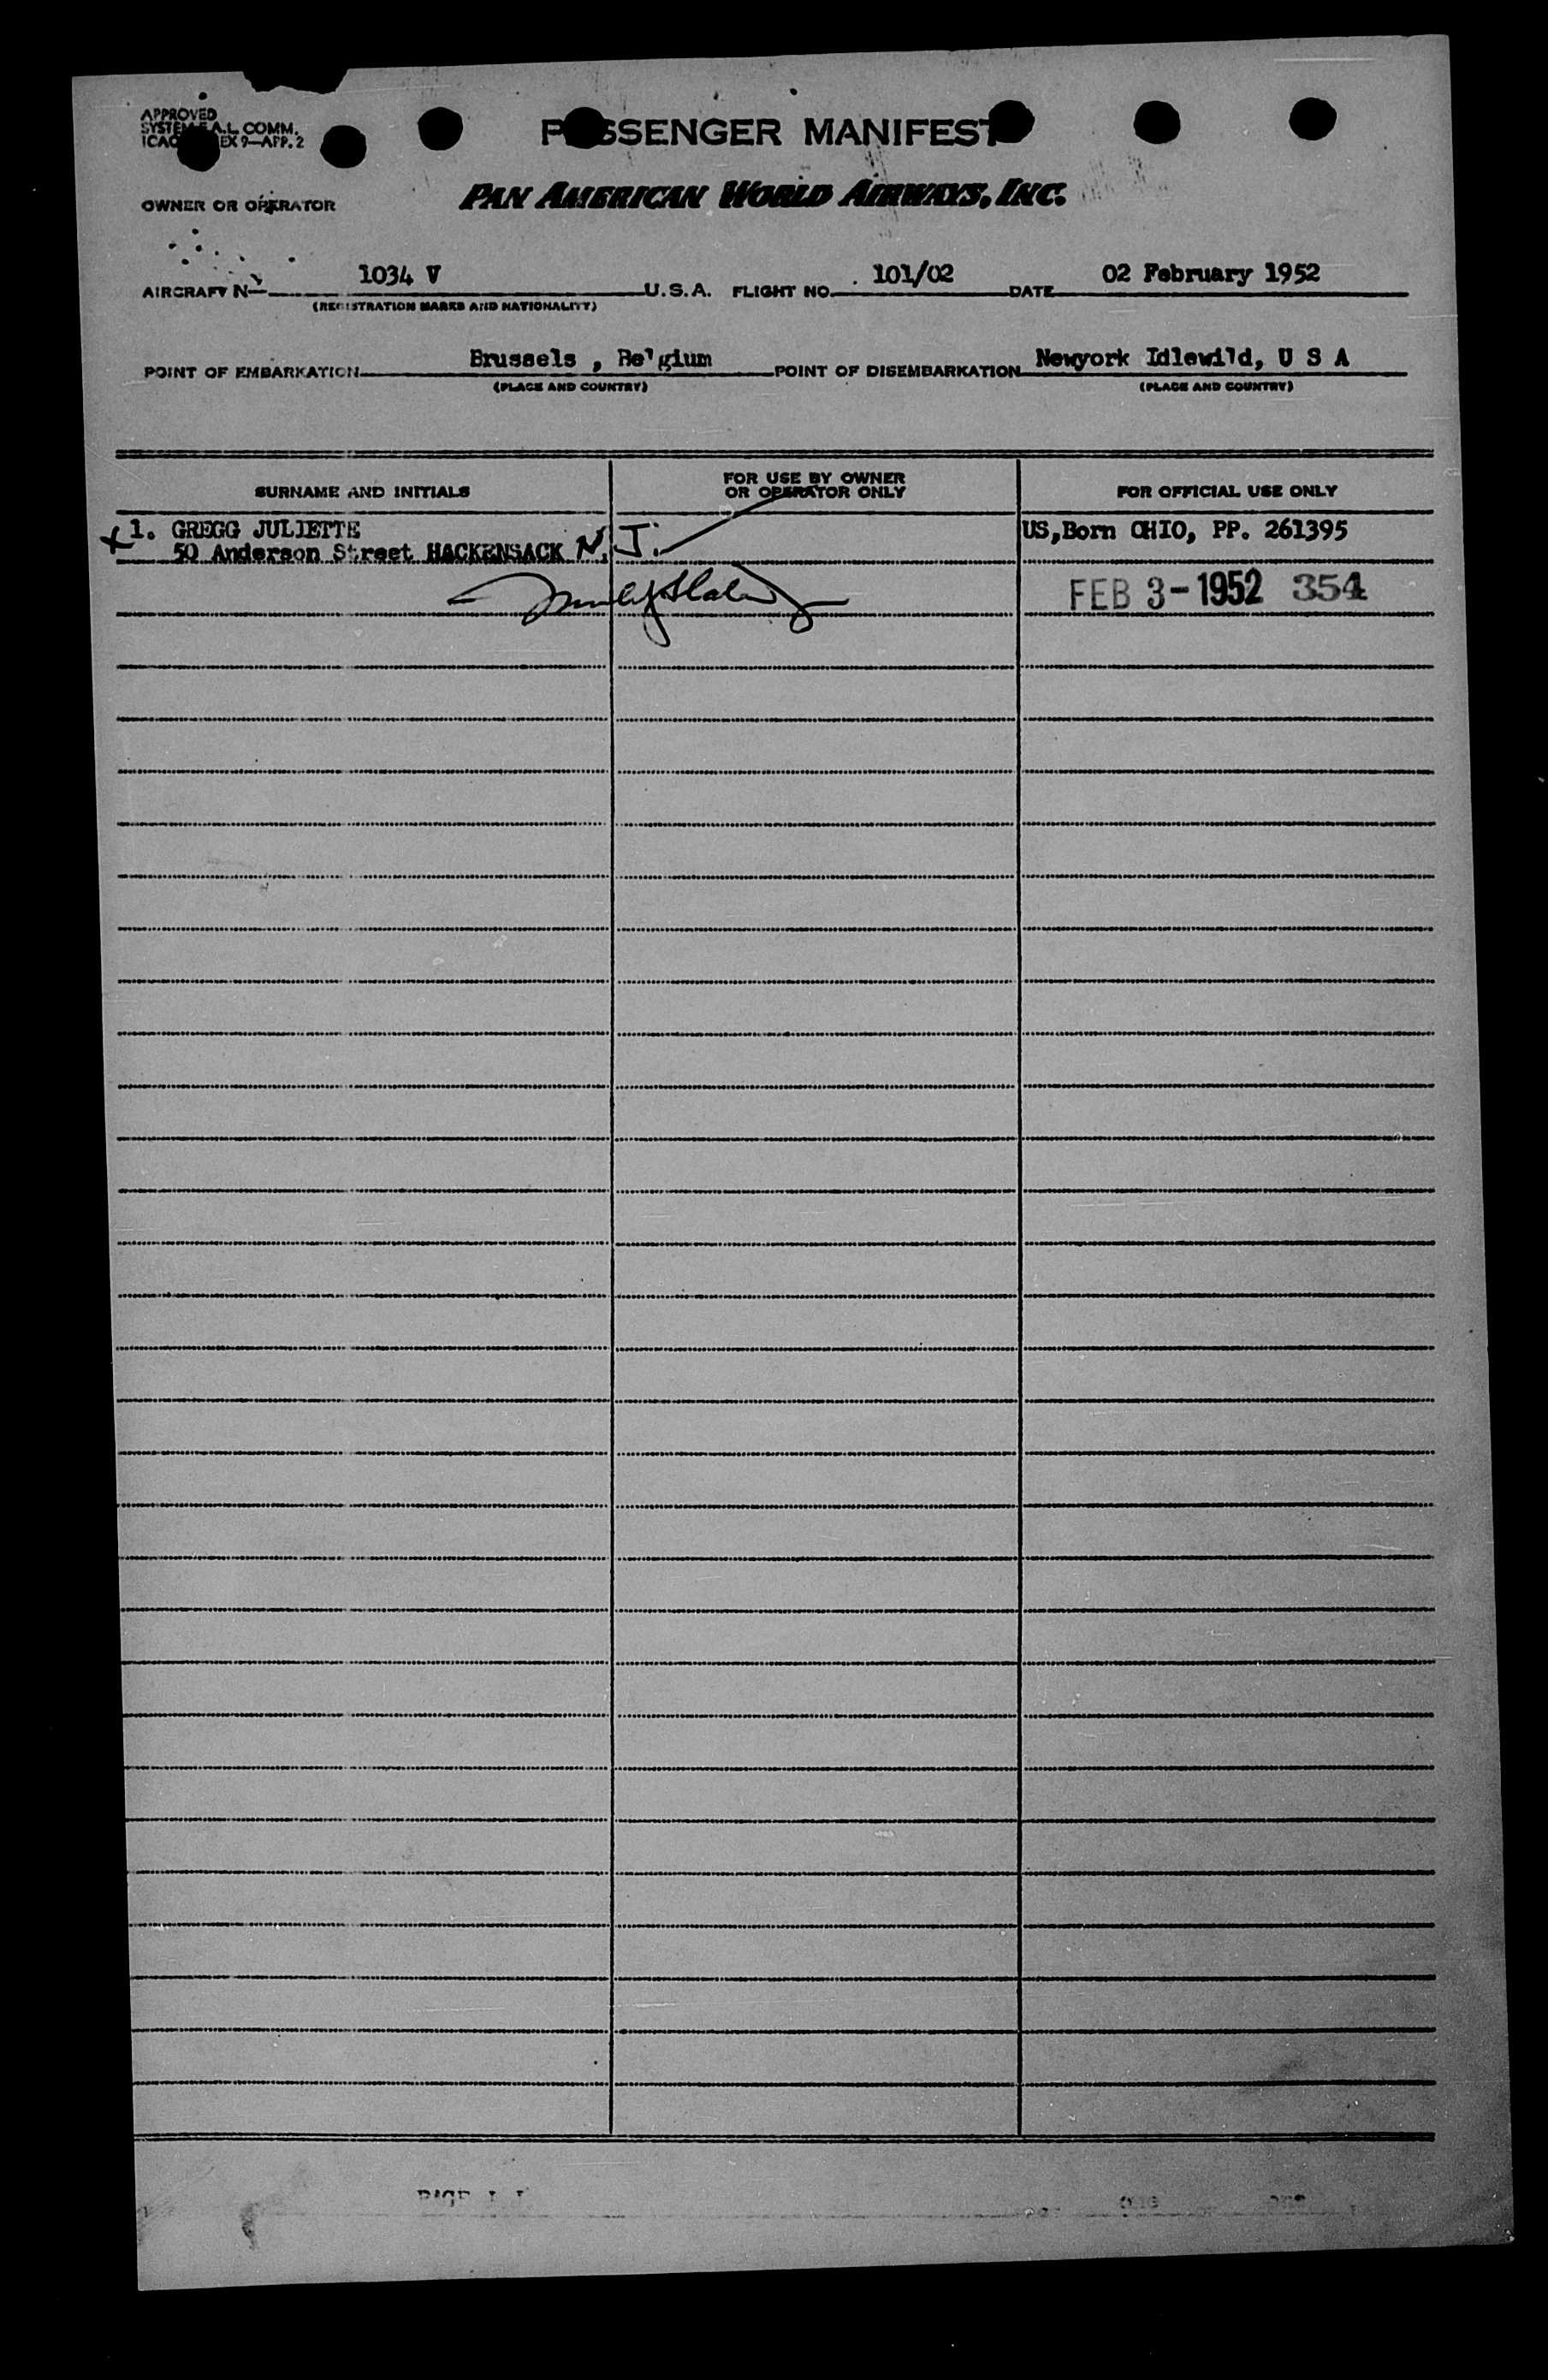 APPROVED
A.L. COMM.
EX 9—APP. 2
PASSENGER MANIFEST
OWNER OR OPERATOR PAN AMERICAN WORLD AIRWAYS, INC.
AIRCRAFT No 1034 V U.S.A. FLIGHT NO. 101/02 DATE 02 February 1952
(REGISTRATION MARKS AND NATIONALITY)
POINT OF EMBARKATION Brussels , Belgium POINT OF DISEMBARKATION Newyork Idlewild, U S A
(PLACE AND COUNTRY) (PLACE AND COUNTRY)
SURNAME AND INITIALS FOR USE BY OWNER OR OPERATOR ONLY FOR OFFICIAL USE ONLY
x 1. GREGG JULIETTE US,Born OHIO, PP. 261395
50 Anderson Street HACKENSACK N. J.
FEB 3-1952 354